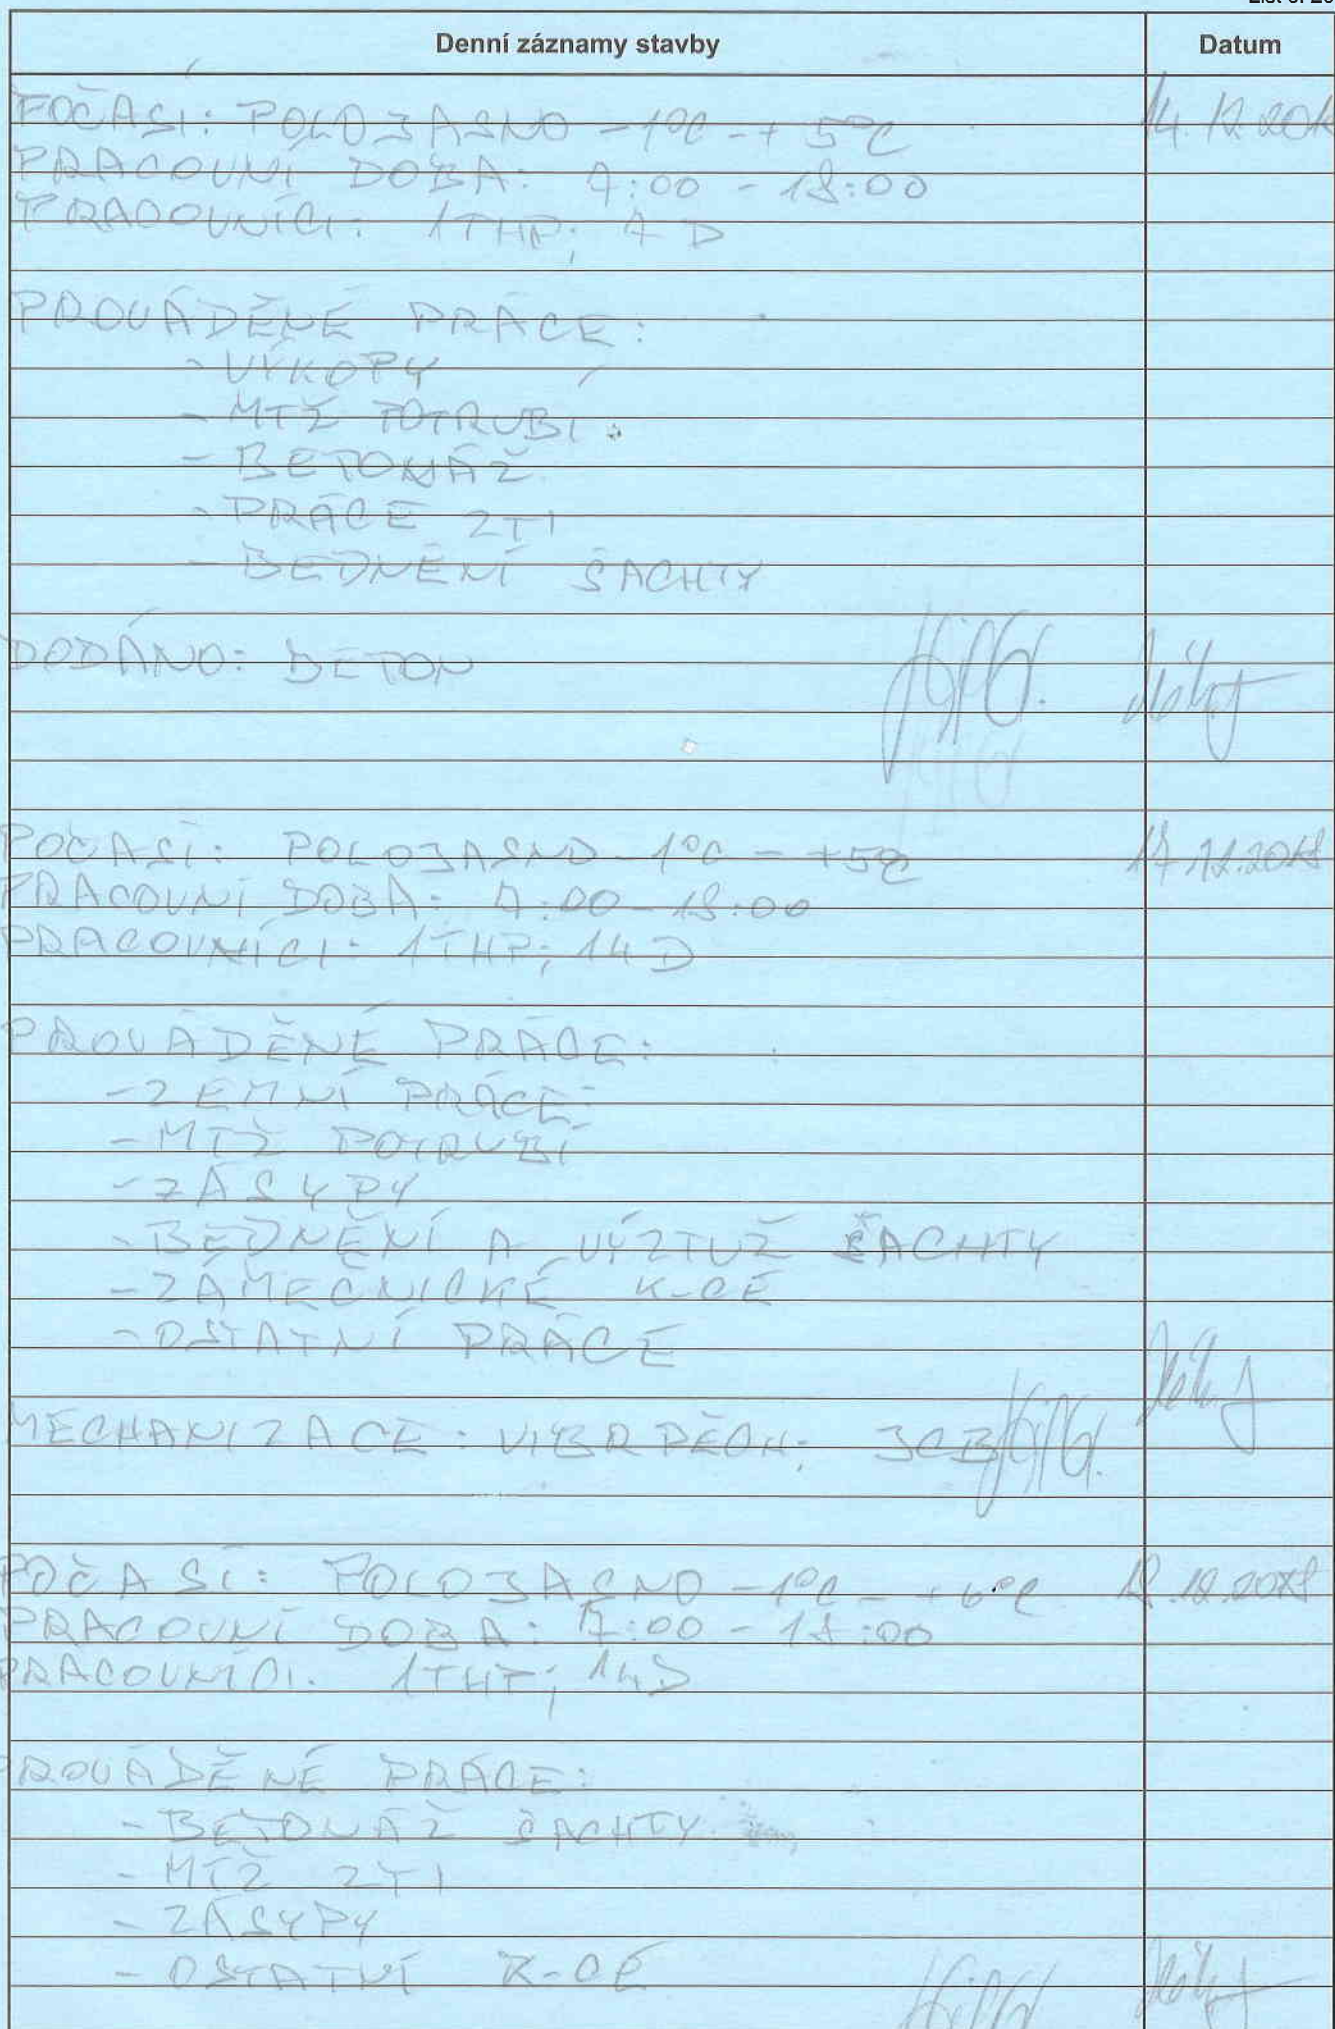 Denní záznamy stavby Datum
POČASÍ: POLOJASNO -1°C - + 5°C 14.12.201
PRACOVNÍ DOBA: 7:00 - 18:00
PRACOVNÍCI: 1THP; 7 D
PROVÁDĚNÉ PRÁCE:
- VÝKOPY
- MTŽ POTRUBÍ
- BETONÁŽ
- PRÁCE ZTI
- BEDNĚNÍ ŠACHTY
DODÁNO: BETON
POČASÍ: POLOJASNO -1°C - +5°C 17.12.2018
PRACOVNÍ DOBA: 7:00 - 18:00
PRACOVNÍCI: 1THP; 14 D
PROVÁDĚNÉ PRÁCE:
- ZEMNÍ PRÁCE
- MTŽ POTRUBÍ
- ZÁSYPY
- BEDNĚNÍ A VÝZTUŽ ŠACHTY
- ZÁMEČNICKÉ K-CE
- OSTATNÍ PRÁCE
MECHANIZACE: VIBR PĚCH; JCB
POČASÍ: POLOJASNO -1°C - +6°C 18.12.2018
PRACOVNÍ DOBA: 7:00 - 18:00
PRACOVNÍCI: 1THP; 14D
PROVÁDĚNÉ PRÁCE:
- BETONÁŽ ŠACHTY
- MTŽ ZTI
- ZÁSYPY
- OSTATNÍ K-CE